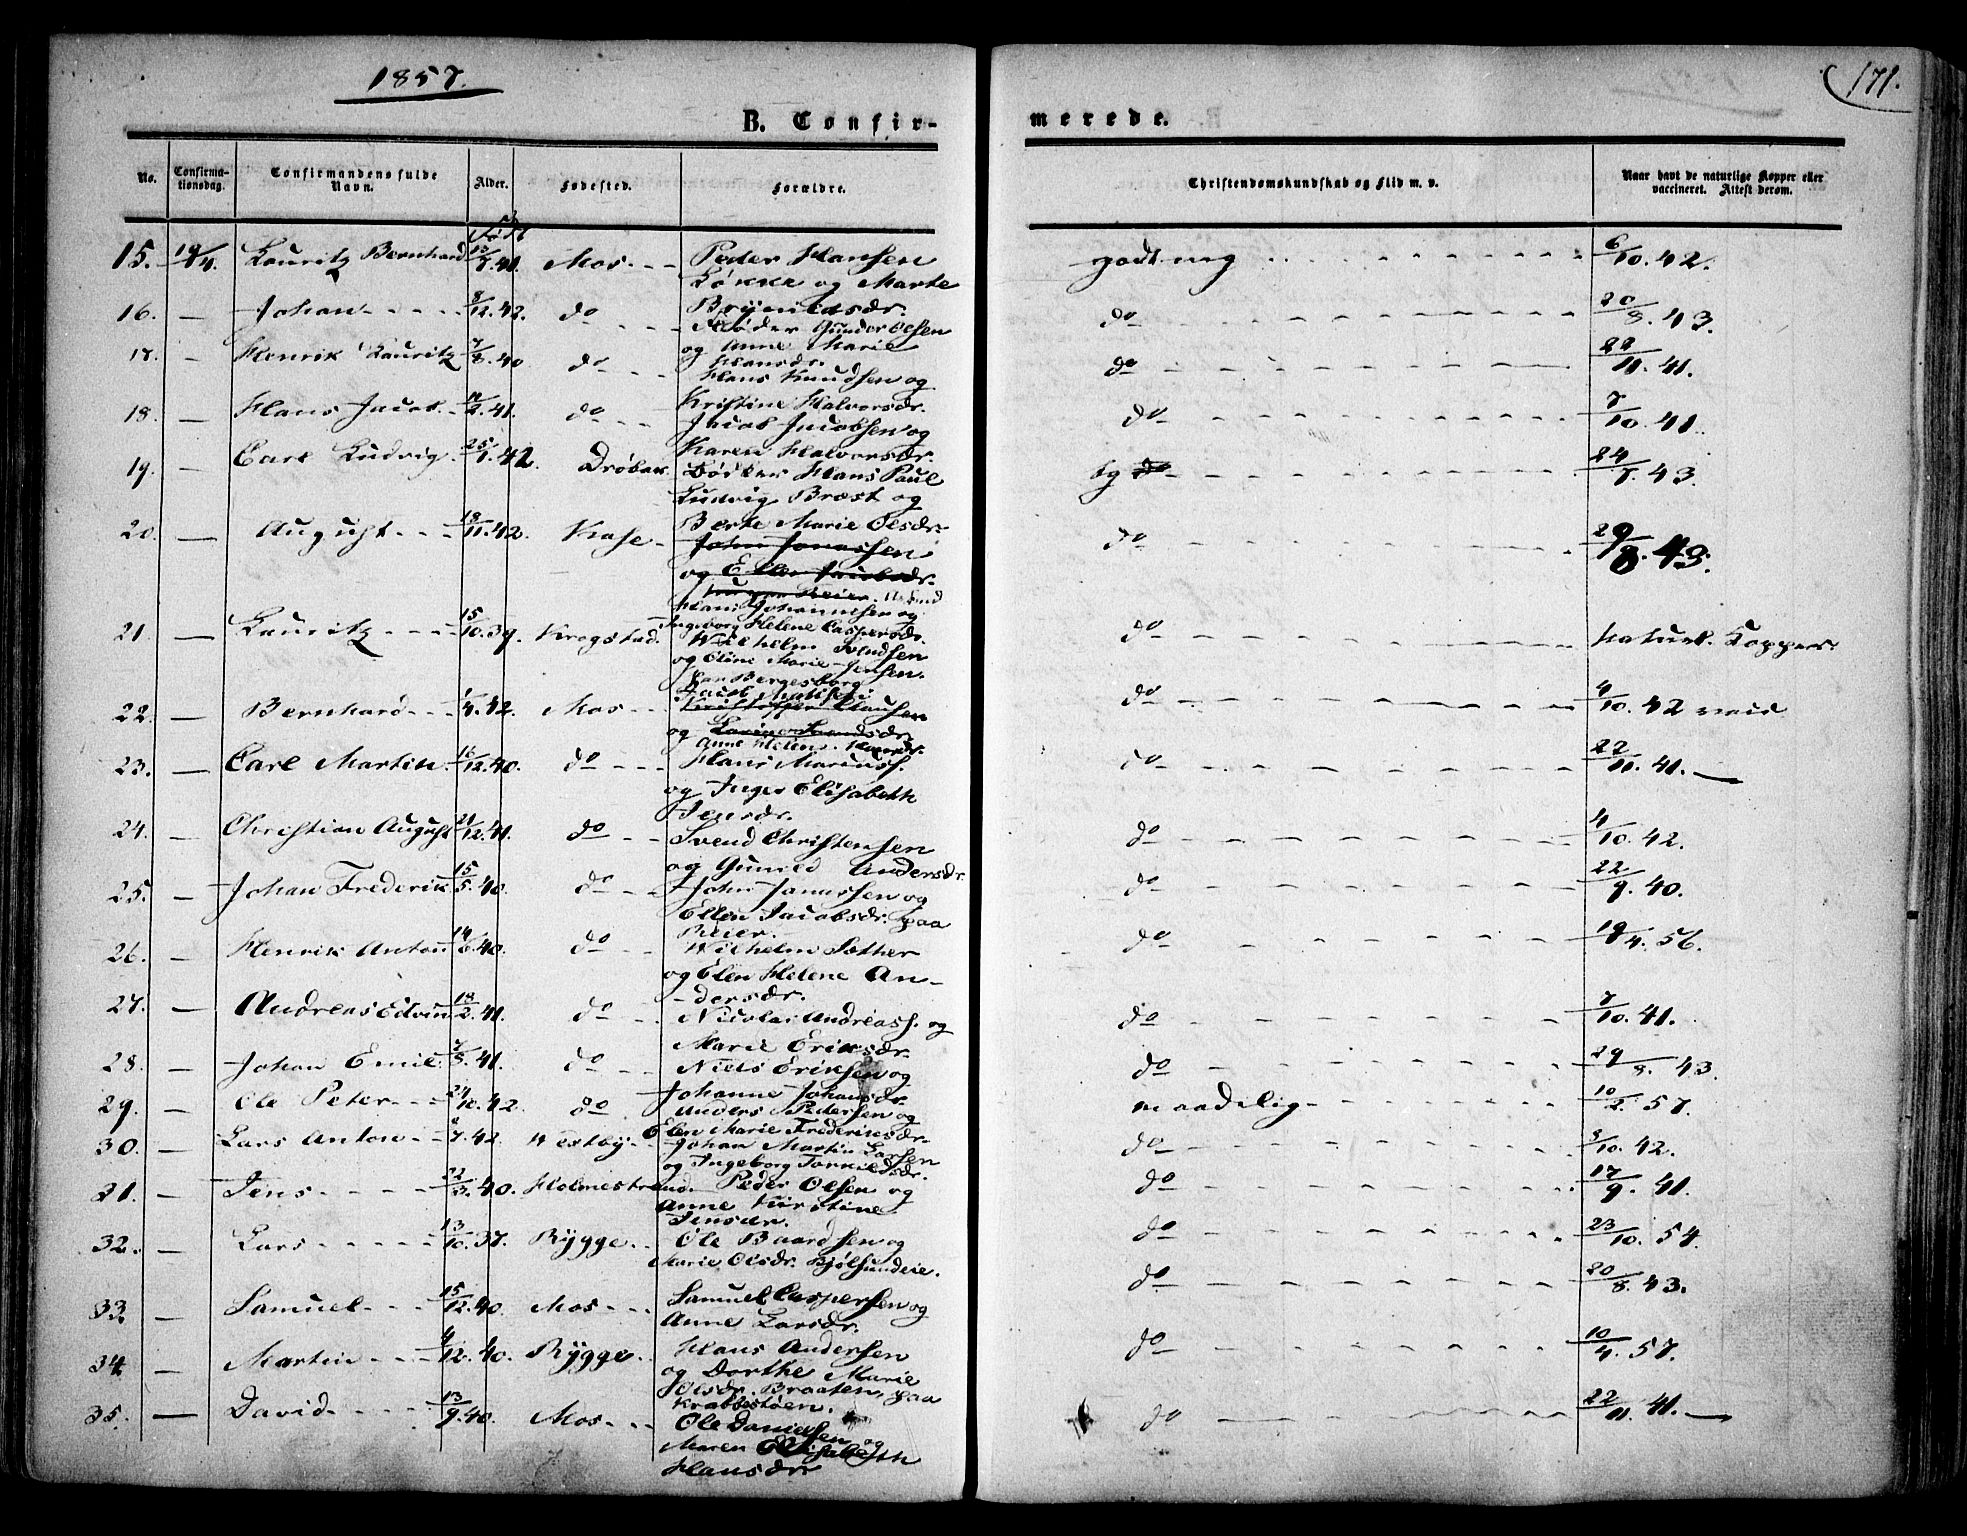 1857.
171.
B. Confir-
merede.
No.
Confirma-
tionsdag.
Confirmandens fulde
Navn.
Alder.
Fødested.
Forældre.
Christendomskundskab og Flid m. v.
Naar havt de naturlige Kopper eller
vaccineret. Attest derom.
Født
15. 19/4. Lauritz Bernhard 41. Mos - - - Peder Hansen godt meg 6/10. 42.
Løkke og Marte
16. — Johan - - - - 8/12. 42. do - - - - Brynildsdr. do 20/8. 43.
Møder Gunder Olsen
17. — Henrik Lauritz 7/8. 40 do - - - og Anne Marie do 22/11. 41.
Hansdr.
Hans Knudsen og
18. — Hans Jacob. 41. do - - - Kristine Halvorsdr. do 7/10. 41.
Jacob Jacobsen og
19. — Carl Ludvig 25/1. 42. Drøbak. Karen Halvorsdr. tg do 24/7. 43.
Bødker Hans Paul
Ludvig Bræst og
20. — August - - - 18/11. 42. Kase - Berte Marie Olsdr. do 29/8. 43.
John Jonassen
og Ellen Jacobsdr.
Hans Johannesen og
21. — Lauritz - - - - 15/10. 39. Krogstad. Ingeborg Helene Caspersdr. do naturl. Kopper.
Wilhelm Knudsen
og Eline Marie Jensen.
Jacob Mathisen
22. — Bernhard - - - 1/4. 42. Mos - - Kristoffer Clausen do 4/10. 42
og
Anne Helene
23. — Carl Martin. 16/12. 40. do - - - - Hans Mariuss. do 22/11. 41. —
og Inger Elisabeth
Jensdr.
24. — Christian August 21/12. 41. do - - - Svend Christensen do 4/10. 42.
og Gunild Andersdr.
25. — Johan Frederik 15/5. 40. do - - - John Jonassen og do 22/9. 40.
Ellen Jacobsdr. paa
Reier.
26. — Henrik Anton 14/6. 40. do - - - Wilhelm Sother do 19/4. 56.
og Elen Helene An-
-dersdr.
27. — Andreas Edvin 18/2. 41. do - - - Nicolai Andreass. og do 7/10. 41.
Marie Eriksdr.
28. — Johan Emil. 7/5. 41. do - - - Niels Eriksen og do 29/8. 43.
Johanne Johansdr.
29. — Ole Peter - - - 24/10. 42. do - - - Anders Pedersen og maadelig - 10/2. 57.
Elen Marie Frederiksdr.
30. — Lars Anton - - - 7. 42. Westby - Johan Martin Larsen do 3/10. 42.
og Ingeborg Torkildsdr.
31. — Jens - - - - - 22/3. 40. Holmestrand. Peder Olsen og do 17/9. 41.
Anne Kirstine
Jensdr.
32. — Lars - - - - - 13/10. 37. Rygge - - Ole Baardsen og do 23/10. 54.
Marie Olsdr. Bjølsundeie.
33. — Samuel - - - - 15/12. 40. Mos - - - Samuel Caspersen og do 20/8. 43.
Anne Larsdr.
34 — Martin - - - - 4/12. 40. Rygge - - Hans Andersen do 10/4. 57.
og Dorthe Marie
Olsdr. Braaten, paa
Krabbestøen.
35. — David - - - - 13/9. 40. Mos - - - Ole Danielsen og do 22/11. 41. —
Maren Elisabeth
Hansdr.